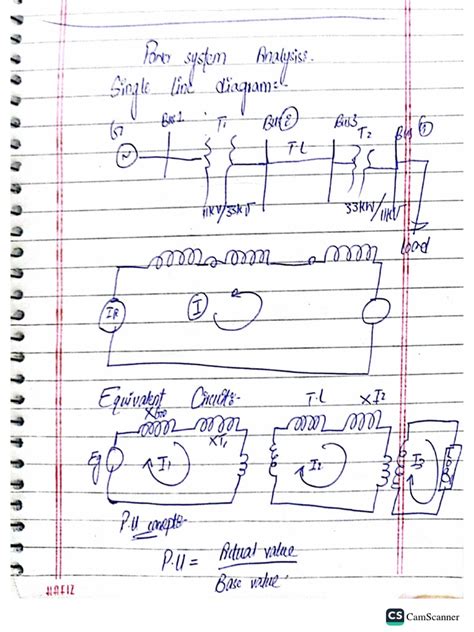 Power system Analysis.
Single line diagram:-
G1 Bus1 T1 Bus2 T.L Bus3 T2 Bus
~
11KV/33KV 33KV/11KV
Load
I
Equivalent Circuits:-
T.L
XT1
Eg I1 I2 I3
P.U concepts-
P.U = Actual value
Base value
CS CamScanner